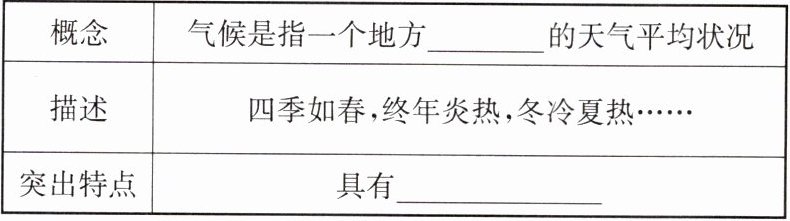 概念 气候是指一个地方________的天气平均状况
描述 四季如春,终年炎热,冬冷夏热……
突出特点 具有______________